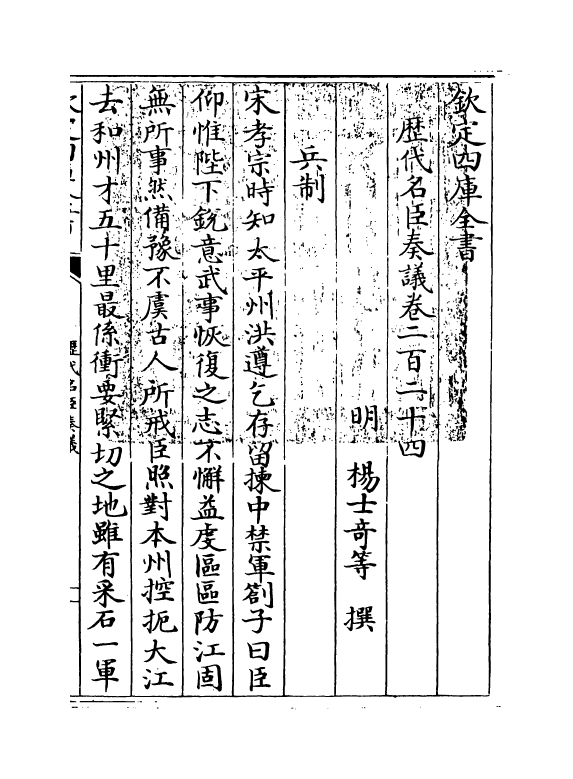 欽定四庫全書
歴代名臣奏議卷二百二十四
明 楊士竒等 撰
兵制
宋孝宗時知太平州洪遵乞存留揀中禁軍劄子曰臣
仰惟陛下銳意武事恢復之志不懈益虔區區防江固
無所事然備豫不虞古人所戒臣照對本州控扼大江
去和州才五十里最係衝要緊切之地雖有采石一軍
歷代名臣奏議